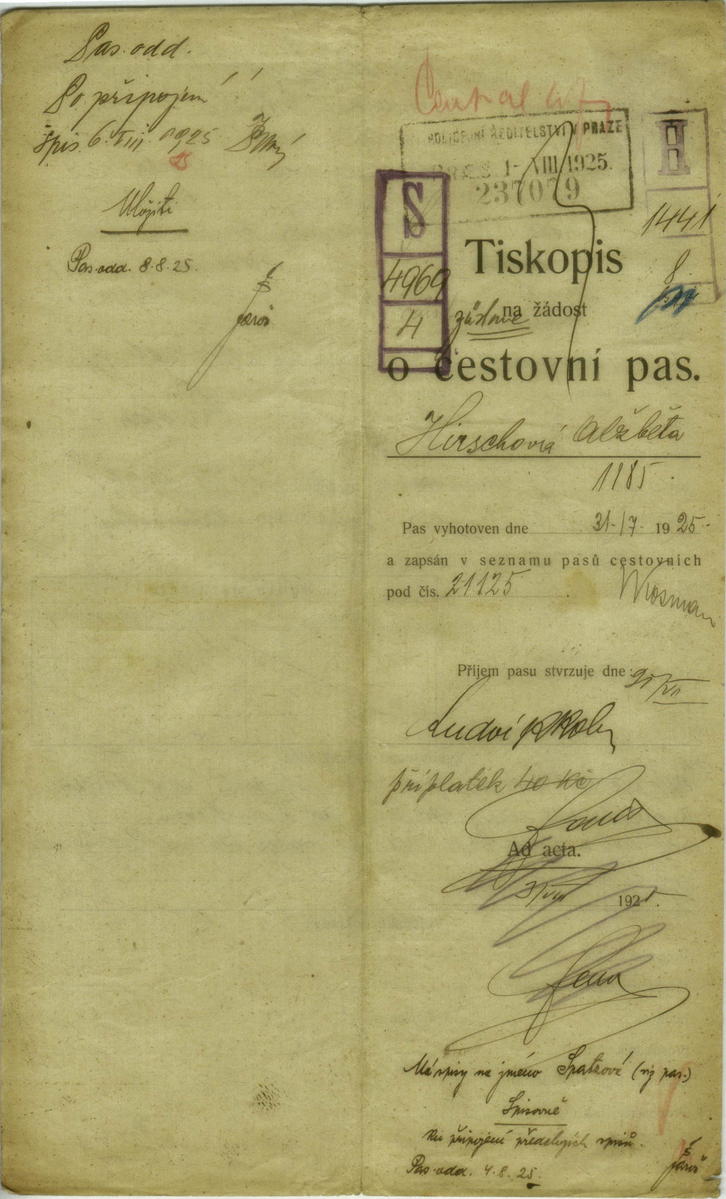 Pas. odd.
Po připojení!
spis. 6. VIII 1925
Uložiti
Pas. odd. 8.8.25.
Jaroš
Central
POLICEJNÍ ŘEDITELSTVÍ V PRAZE
1- VIII 1925.
237079
S
4969
4
H
1441
8
Tiskopis
na žádost
o cestovní pas.
Hirschová Alžběta
1185
Pas vyhotoven dne 31-/7- 1925-
a zapsán v seznamu pasů cestovních
pod čís. 21125
Příjem pasu stvrzuje dne
Ludvík
příplatek 40 Kč
Ad acta.
31/VII 192
Má spisy na jméno Spatzová (viz pas.)
Spisovně
ku připojení předešlých spisů.
Pas. odd. 4.8.25.
Jaroš